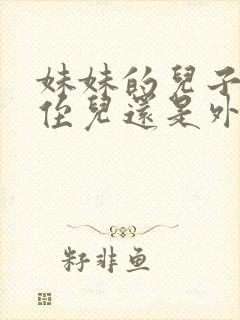 妹妹的兒子
侄兒還是外
籽非鱼